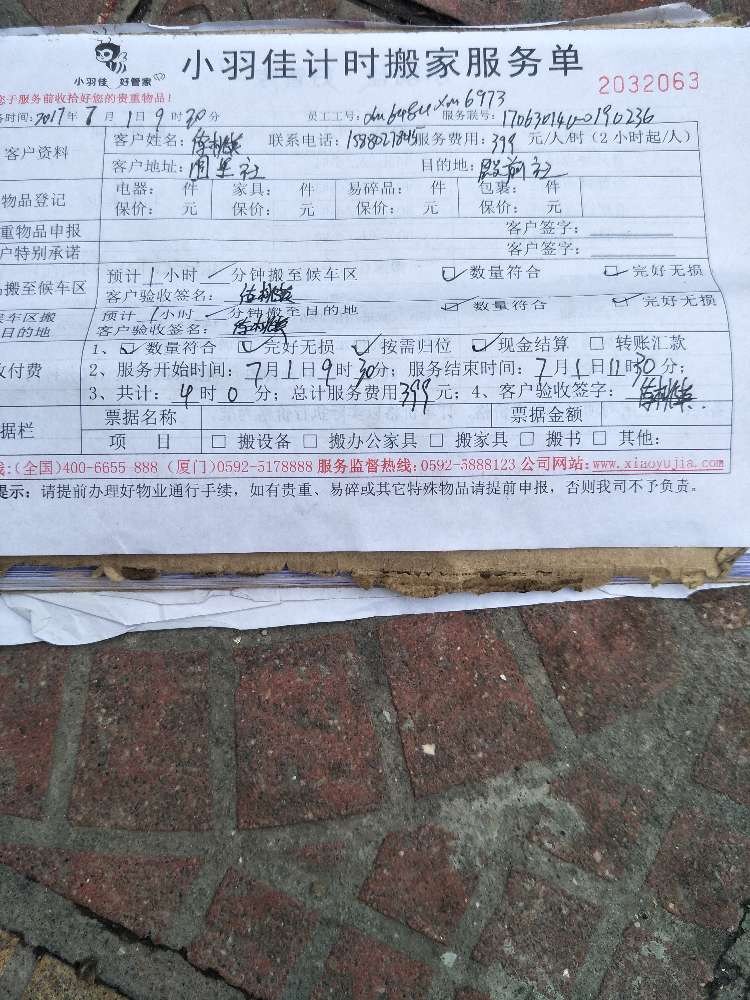 小羽佳 好管家
小羽佳计时搬家服务单
2032063
于服务前收拾好您的贵重物品！
时间：2017年7月1日9时30分 员工工号： 6973 服务联号：
客户资料
客户姓名： 联系电话： 服务费用：399 元/人/时(2小时起/人)
客户地址： 社 目的地：殿前社
物品登记
电器： 件 家具： 件 易碎品： 件 包裹： 件
保价： 元 保价： 元 保价： 元 保价： 元
重物品申报 客户签字：
户特别承诺 客户签字：
搬至候车区
预计1小时 分钟搬至候车区 数量符合 完好无损
客户验收签名：
车区搬
目的地
预计1小时 分钟搬至目的地 数量符合 完好无损
客户验收签名：
付费
1、 数量符合 完好无损 按需归位 现金结算 转账汇款
2、服务开始时间：7月1日9时30分；服务结束时间：7月1日11时30分；
3、共计：4时0分；总计服务费用399元；4、客户验收签字：
据栏
票据名称 票据金额
项 目 搬设备 搬办公家具 搬家具 搬书 其他：
线:(全国)400-6655 888 (厦门)0592-5178888 服务监督热线:0592-5888123 公司网站:www.xiaoyujia.com
提示：请提前办理好物业通行手续，如有贵重、易碎或其它特殊物品请提前申报，否则我司不予负责。